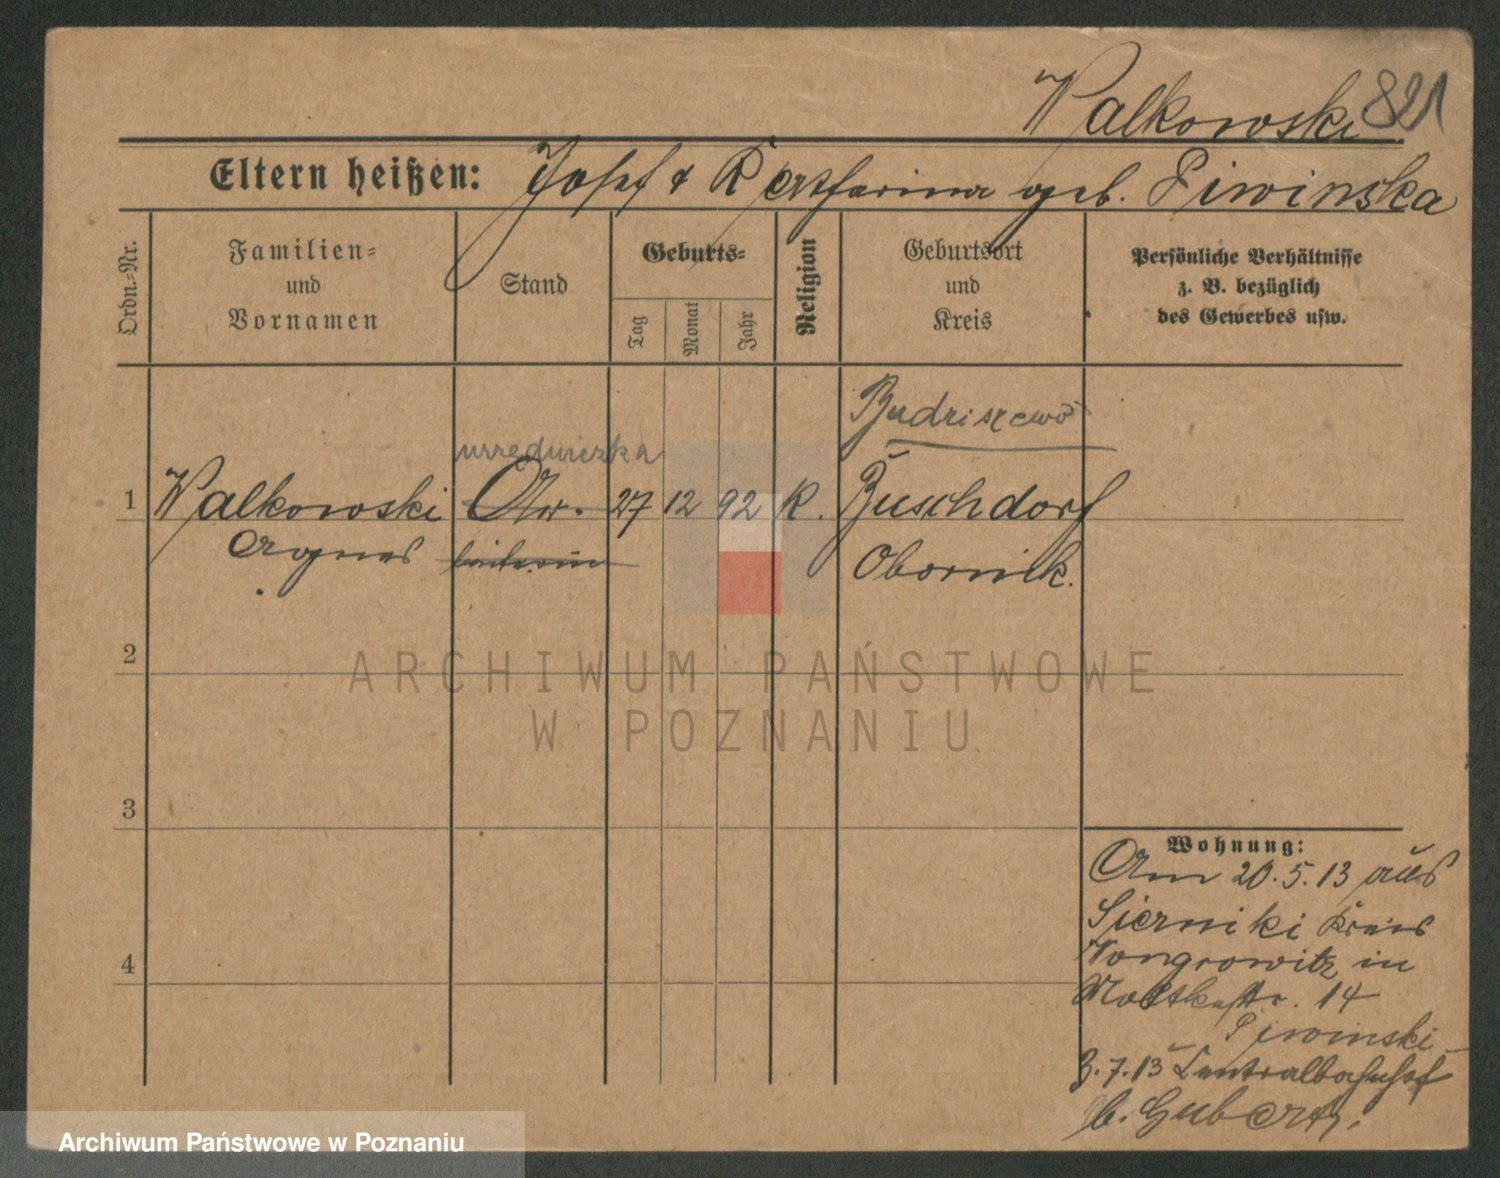 Walkowski 821
Eltern heißen: Josef & Katharina geb. Piwinska
Ordn.-Nr.
Familien-
und
Vornamen
Stand
Geburts-
Tag
Monat
Jahr
Religion
Geburtsort
und
Kreis
Persönliche Verhältnisse
z. B. bezüglich
des Gewerbes usw.
Budziszewo
urzędniczka
1 Walkowski Arb. 27 12 92 K. Buschdorf
Agnes Obornik.
2
3
4
Wohnung:
Am 20.5.13 aus
Sierniki Kreis
Wongrowitz in
Moltkestr. 14
Piwinski
3.7.13 Centralbahnhof
b.
ARCHIWUM PAŃSTWOWE
W POZNANIU
Archiwum Państwowe w Poznaniu